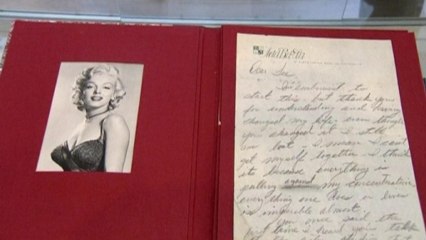 Dear Lee,
I'm embarrassed to
start this. but thank you
for understanding and having
changed my life, even though
you changed it I still
am lost — I mean I can't
get myself together I think
its because everything is
pulling against my concentration
everything one does or lives
is impossible almost.
You once said the
first time I heard you talk